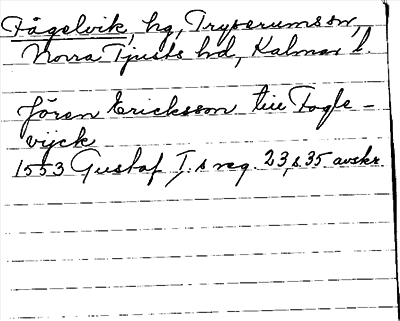 Fågelvik, hg, Tryserums sn,
Norra Tjusts hd, Kalmar l.
Jören Ericksson till Fogle-
vijck
1553 Gustaf I:s reg. 23, s 35 avskr.